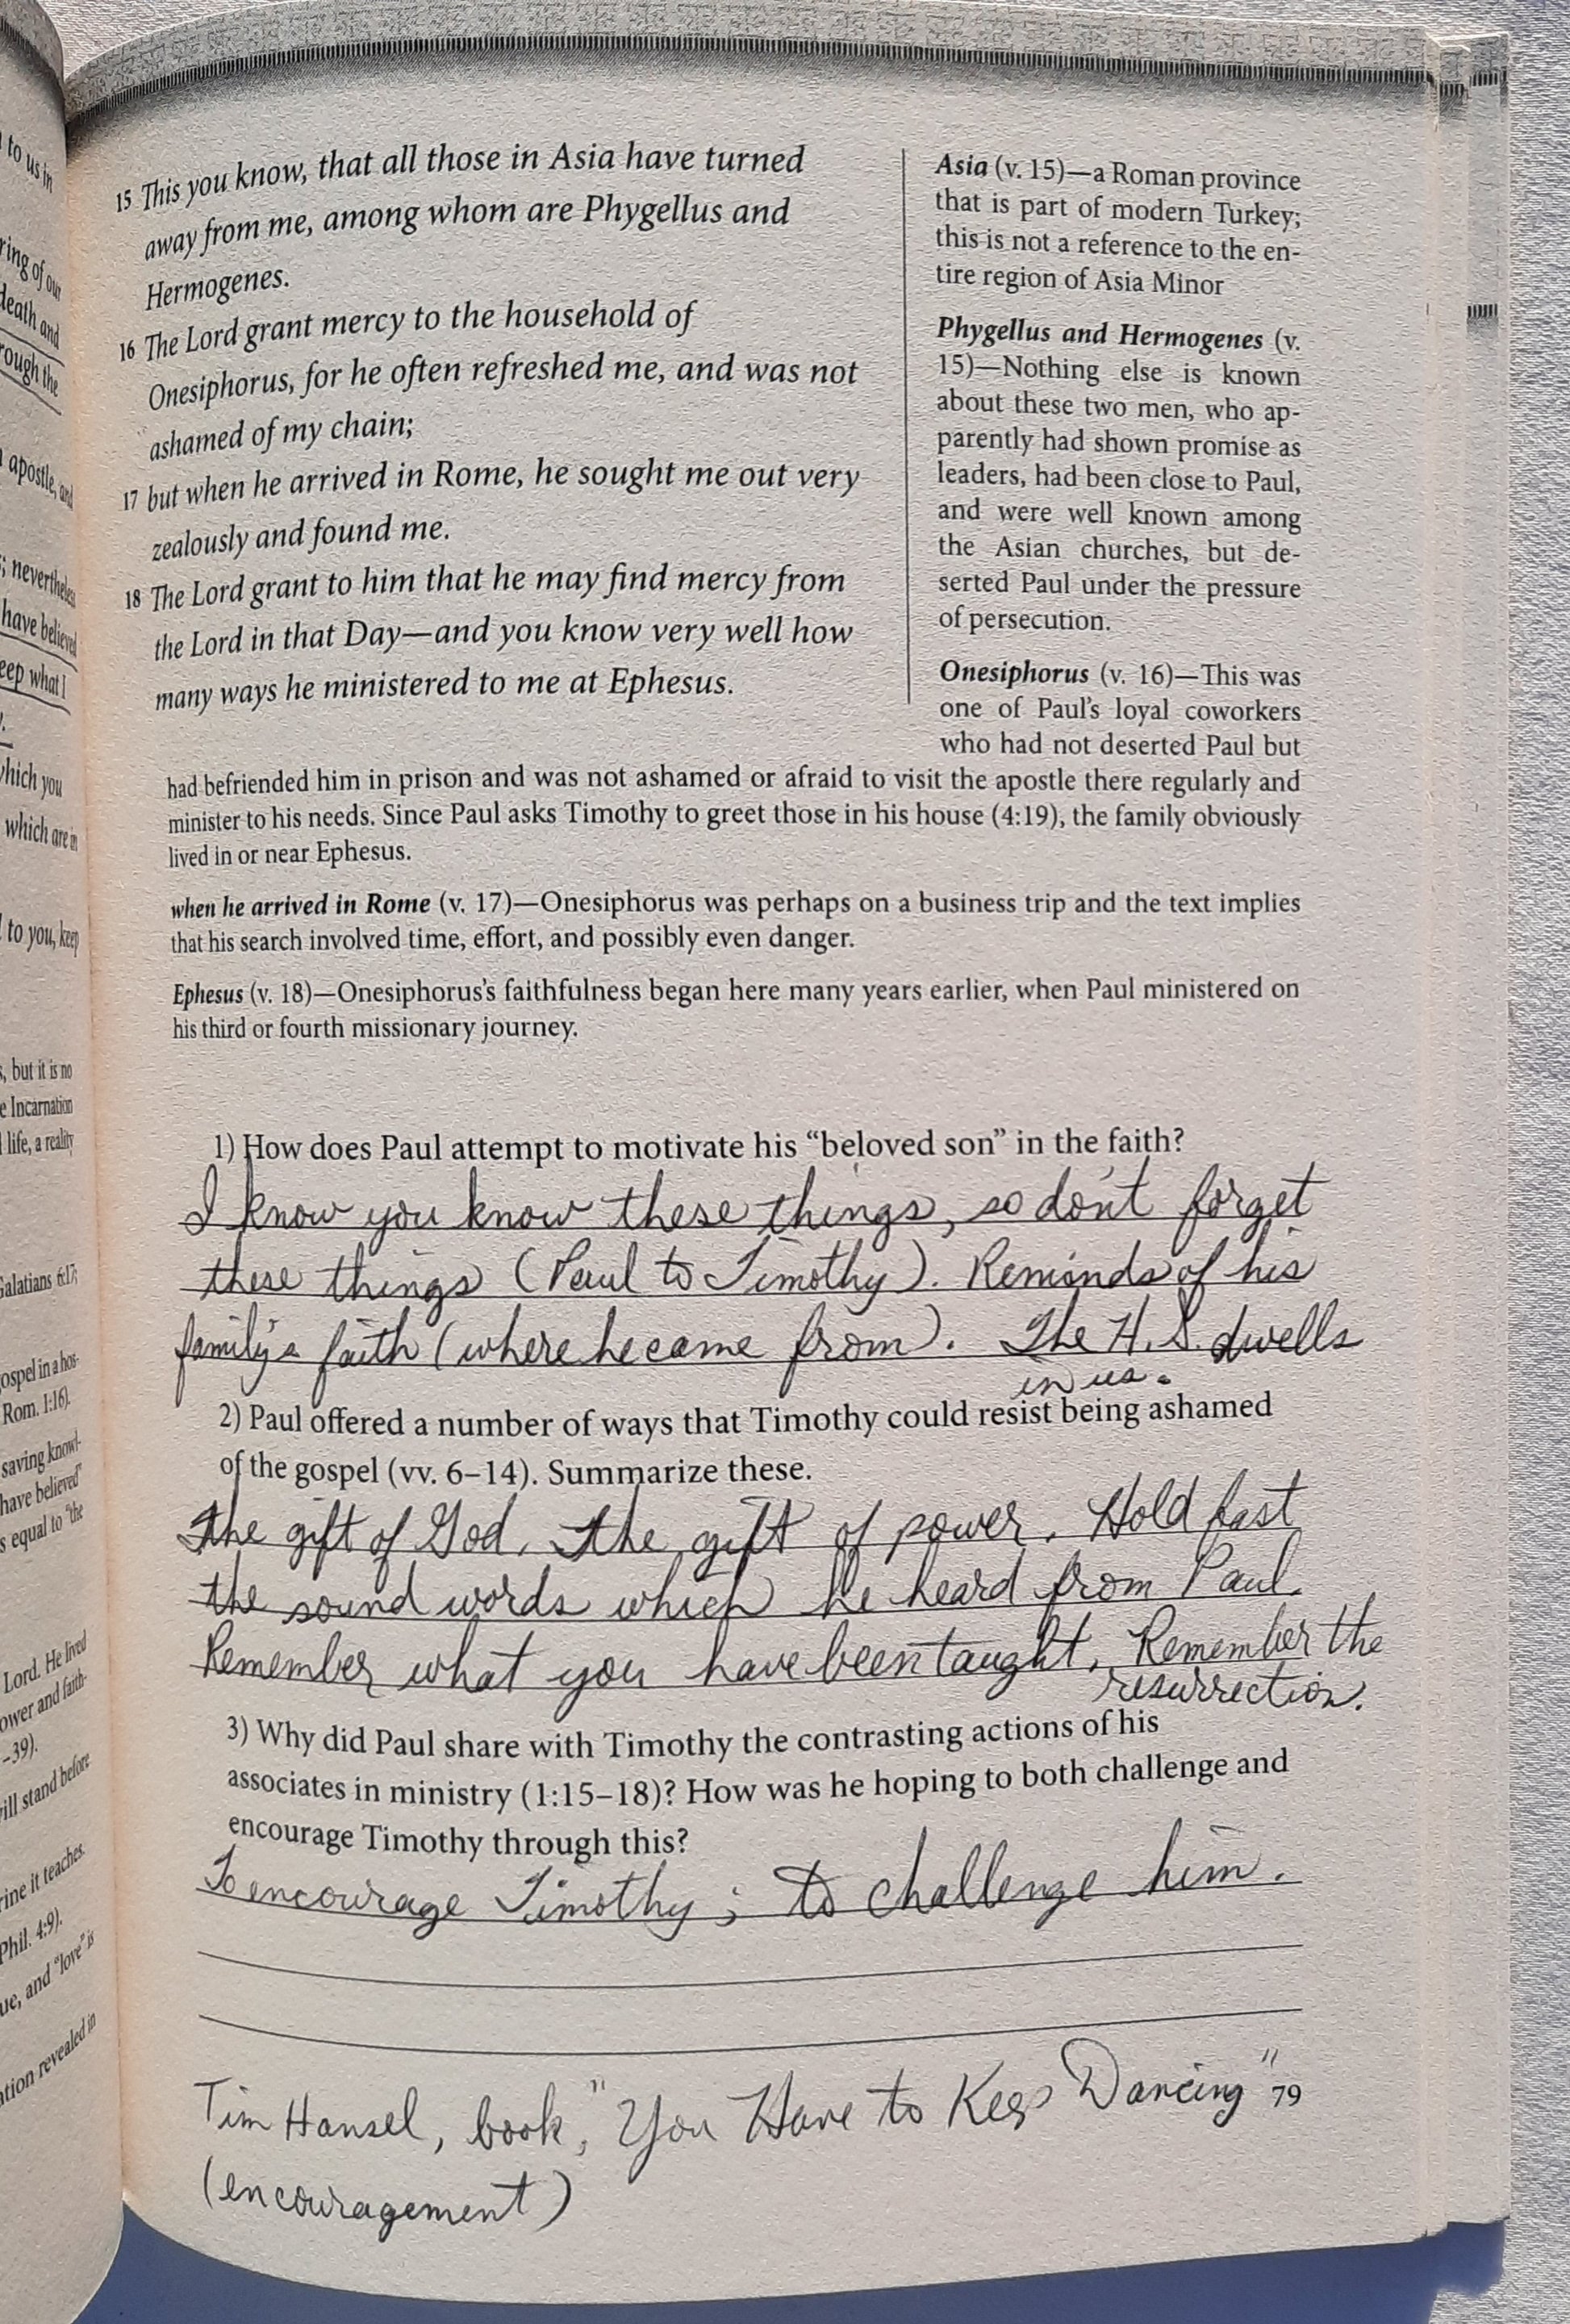 to us in
ring of our
death and
rough the
apostle, and
; nevertheless
have believed
eep what I
which you
which are in
to you, keep
, but it is no
e Incarnation
life, a reality
Galatians 6:17;
ospel in a hos-
Rom. 1:16).
saving knowl-
have believed"
s equal to "the
Lord. He lived
ower and faith-
–39).
ill stand before
rine it teaches.
Phil. 4:9).
ue, and "love" is
tion revealed in
15 This you know, that all those in Asia have turned
away from me, among whom are Phygellus and
Hermogenes.
16 The Lord grant mercy to the household of
Onesiphorus, for he often refreshed me, and was not
ashamed of my chain;
17 but when he arrived in Rome, he sought me out very
zealously and found me.
18 The Lord grant to him that he may find mercy from
the Lord in that Day—and you know very well how
many ways he ministered to me at Ephesus.
Asia (v. 15)—a Roman province
that is part of modern Turkey;
this is not a reference to the en-
tire region of Asia Minor
Phygellus and Hermogenes (v.
15)—Nothing else is known
about these two men, who ap-
parently had shown promise as
leaders, had been close to Paul,
and were well known among
the Asian churches, but de-
serted Paul under the pressure
of persecution.
Onesiphorus (v. 16)—This was
one of Paul's loyal coworkers
who had not deserted Paul but
had befriended him in prison and was not ashamed or afraid to visit the apostle there regularly and
minister to his needs. Since Paul asks Timothy to greet those in his house (4:19), the family obviously
lived in or near Ephesus.
when he arrived in Rome (v. 17)—Onesiphorus was perhaps on a business trip and the text implies
that his search involved time, effort, and possibly even danger.
Ephesus (v. 18)—Onesiphorus's faithfulness began here many years earlier, when Paul ministered on
his third or fourth missionary journey.
1) How does Paul attempt to motivate his "beloved son" in the faith?
I know you know these things, so don't forget
these things (Paul to Timothy). Reminds of his
family's faith (where he came from). The H.S. dwells
in us.
2) Paul offered a number of ways that Timothy could resist being ashamed
of the gospel (vv. 6–14). Summarize these.
The gift of God. The gift of power. Hold fast
the sound words which he heard from Paul.
Remember what you have been taught. Remember the
resurrection.
3) Why did Paul share with Timothy the contrasting actions of his
associates in ministry (1:15–18)? How was he hoping to both challenge and
encourage Timothy through this?
To encourage Timothy; to challenge him.
Tim Hansel, book, "You Have to Keep Dancing"
79
(encouragement)